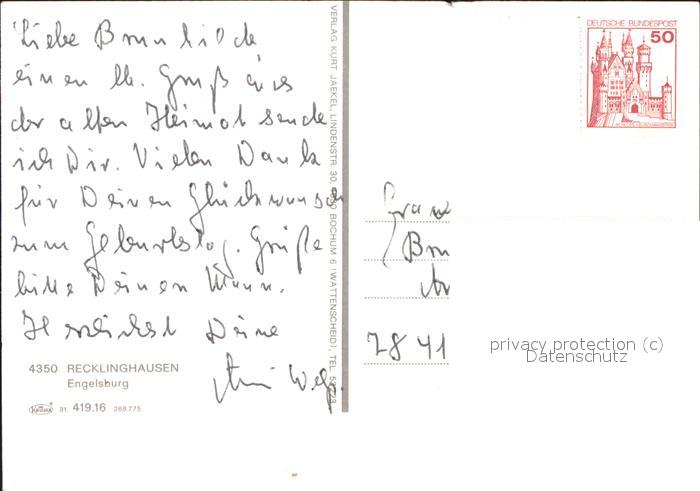 Liebe Brunhilde
einen lb. Gruß aus
der alten Heimat sende
ich Dir. Vielen Dank
für Deinen Glückwunsch
zum Geburtstag. Grüße
bitte Deinen Mann.
Herzlichst Deine
4350 RECKLINGHAUSEN
Engelsburg
31. 419.16 268775
VERLAG KURT JAEKEL, LINDENSTR. 30, BOCHUM 6 (WATTENSCHEID), TEL.
DEUTSCHE BUNDESPOST
50
Frau
Bru
7841
privacy protection (c)
Datenschutz